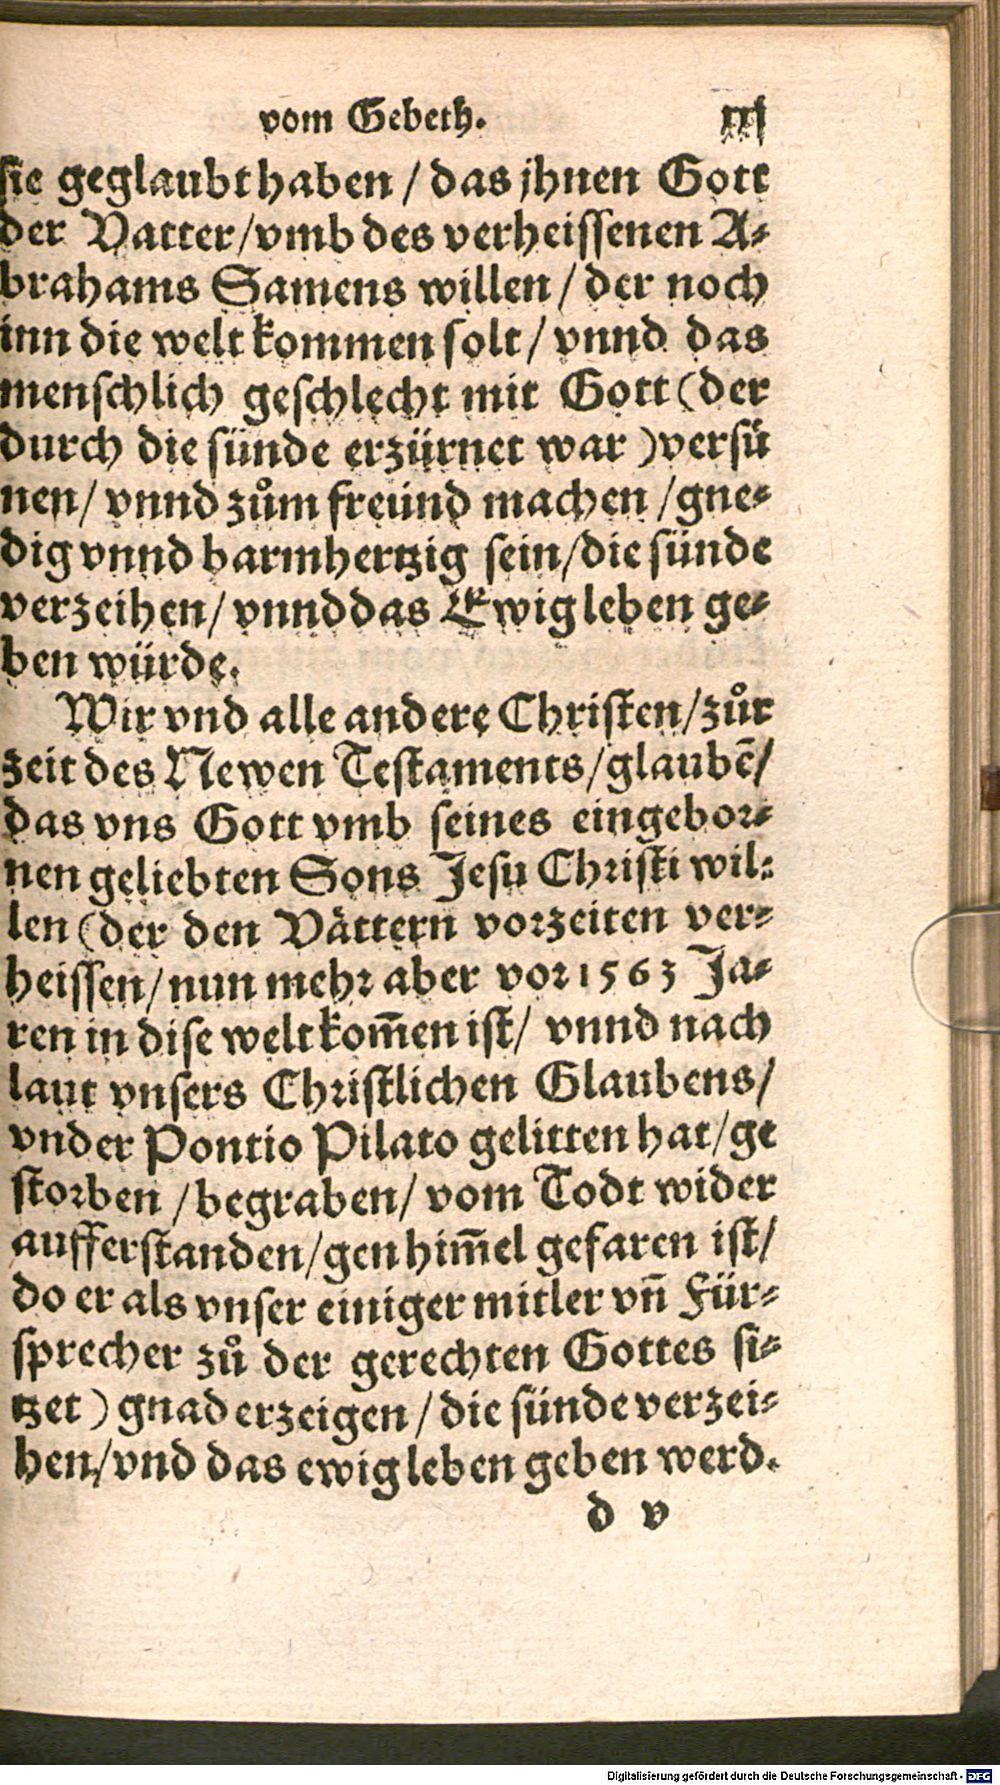 vom Gebeth. xxj
sie geglaubt haben / das jhnen Gott
der Vatter / vmb des verheissenen A⸗
brahams Samens willen / der noch
inn die welt kommen solt / vnnd das
menschlich geschlecht mit Gott (der
durch die sünde erzürnet war) versü
nen / vnnd zům freünd machen / gne⸗
dig vnnd barmhertzig sein / die sünde
verzeihen / vnnd das Ewig leben ge⸗
ben würde.
Wir vnd alle andere Christen / zůr
zeit des Newen Testaments / glaubē /
das vns Gott vmb seines eingebor⸗
nen geliebten Sons Jesu Christi wil⸗
len (der den Vättern vorzeiten ver⸗
heissen / nun mehr aber vor 1563 Ja⸗
ren in dise welt kom̄en ist / vnnd nach
laut vnsers Christlichen Glaubens /
vnder Pontio Pilato gelitten hat / ge
storben / begraben / vom Todt wider
aufferstanden / gen him̄el gefaren ist /
do er als vnser einiger mitler vn̄ Für⸗
sprecher zů der gerechten Gottes si⸗
tzet) gnad erzeigen / die sünde verzei⸗
hen / vnd das ewig leben geben werd.
d v
Digitalisierung gefördert durch die Deutsche Forschungsgemeinschaft - DFG